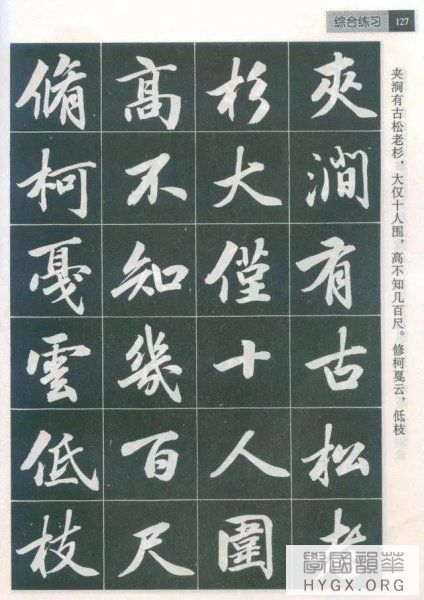 综合练习 127
夾澗有古松老
杉大僅十人圍
高不知幾百尺
脩柯戞雲低枝
夹涧有古松老杉，大仅十人围，高不知几百尺。修柯戛云，低枝
華韻國學
HYGX.ORG